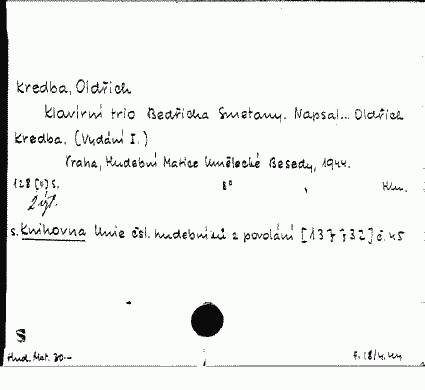 Kredba, Oldřich
Klavírní trio Bedřicha Smetany. Napsal... Oldřich
Kredba. (Vydání I.)
Praha, Hudební Matice Umělecké Besedy, 1944.
128 [II] s. 8°
s. Knihovna Unie čsl. hudebníků z povolání č. 45
S
Hud. Mat. 30.-